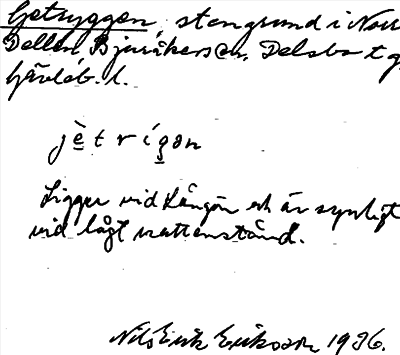 Getryggen, stengrund i Norr
Dellen Bjuråkers sn. Delsbo t g
Gävleb. l.
jètrígon
Ligger vid Långön och är synligt
vid lågt vattenstånd.
Nils Erik Eriksson 1936.